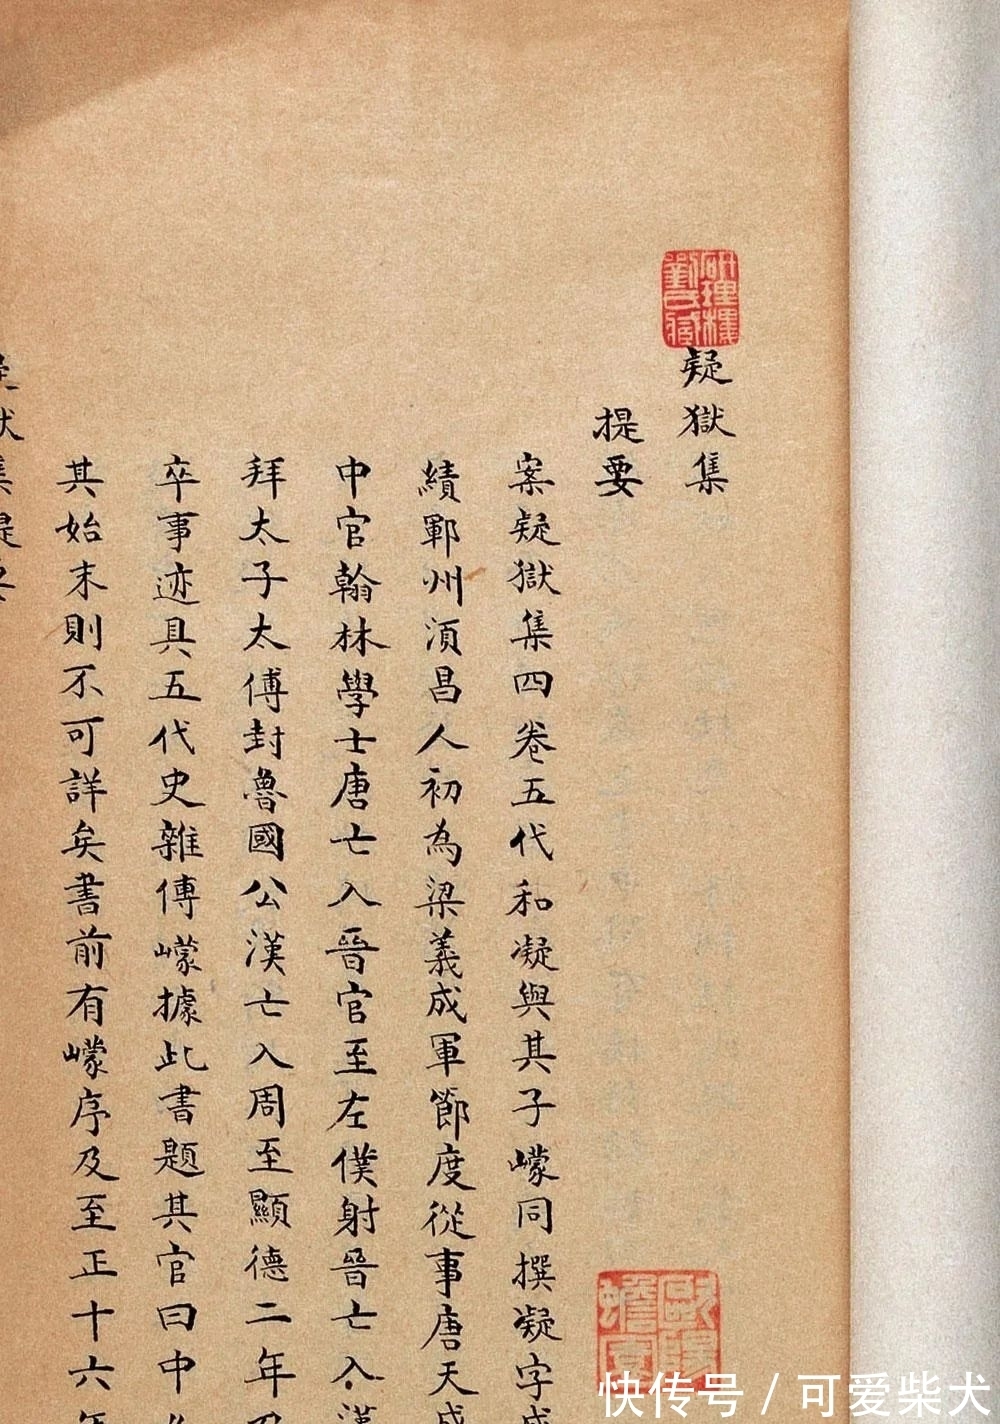 疑獄集
提要
案疑獄集四卷五代和凝與其子㠓同撰凝字成
績鄆州湏昌人初為梁義成軍節度從事唐天成
中官翰林學士唐亡入晉官至左僕射晉亡入漢
拜太子太傅封魯國公漢亡入周至顯德二年乃
卒事迹具五代史雜傳㠓據此書題其官曰中
其始末則不可詳矣書前有㠓序及至正十六年
研理樓劉氏藏
歐陽蟾園
快传号 / 可爱柴犬